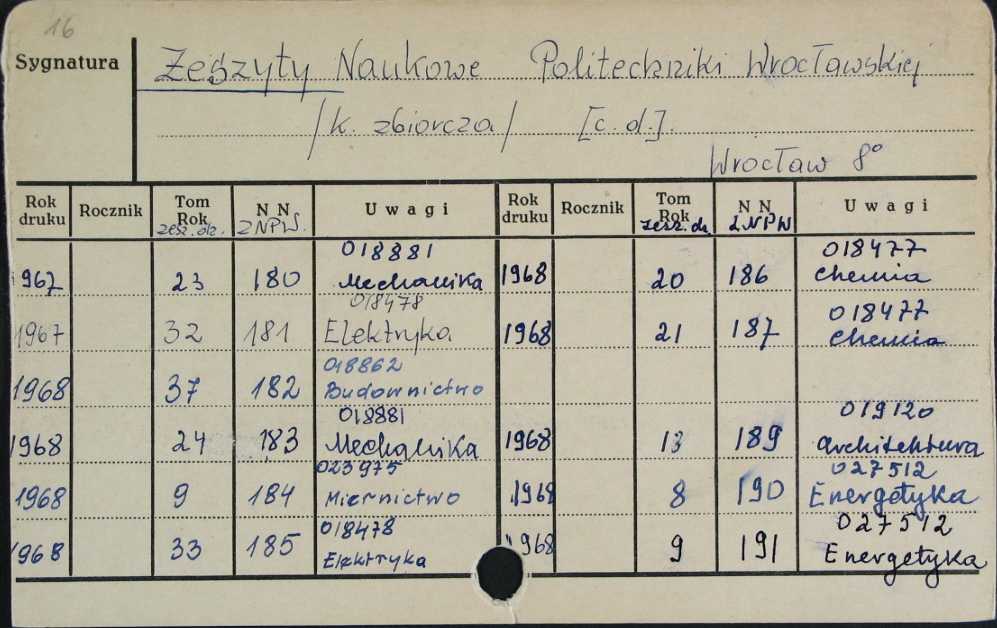 16
Sygnatura
Zeszyty Naukowe Politechniki Wrocławskiej
/k. zbiorcza/ [c.d.].
Wrocław 8°
Rok druku Rocznik Tom Rok zesz. dz. N N ZNPW. Uwagi Rok druku Rocznik Tom Rok zesz. dz. N N ZNPW Uwagi
1967 23 180 018881 Mechanika 1968 20 186 018477 Chemia
1967 32 181 018478 Elektryka 1968 21 187 018477 Chemia
1968 37 182 018862 Budownictwo
1968 24 183 018881 Mechanika 1968 13 189 019120 Architektura
1968 9 184 023975 Miernictwo 1968 8 190 027512 Energetyka
1968 33 185 018478 Elektryka 1968 9 191 027512 Energetyka